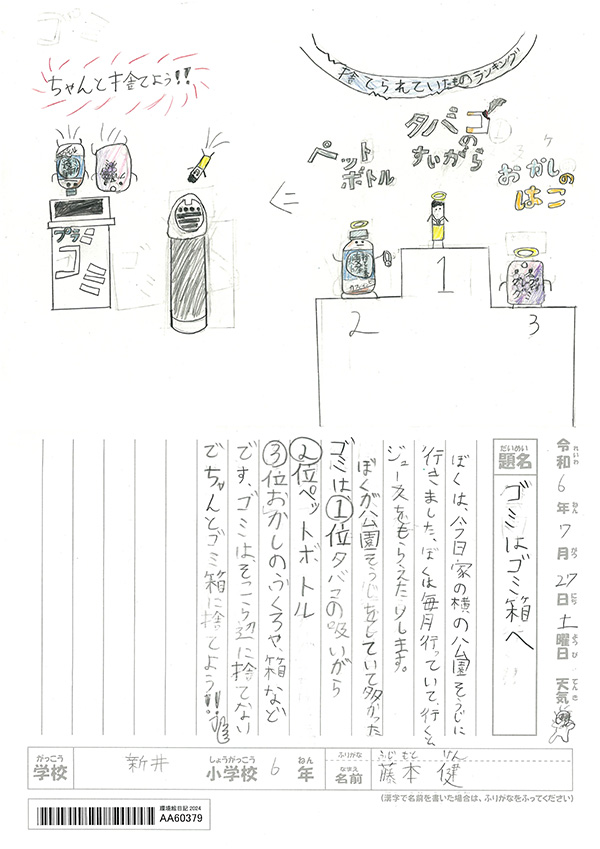 ちゃんと捨てよう!!
プラ
ゴミ
捨てられていたものランキング
タバコの
すいがら
ペット
ボトル
おかしの
はこ
1
2
3
令和6年7月27日土曜日 天気
れいわ ねん がつ にち ようび てんき
だいめい
題名
ゴミはゴミ箱へ
ぼくは、今日家の横の公園そうじに
行きました。ぼくは毎月行っていて、行くと
ジュースをもらえたりします。
ぼくが公園そうじをしていて多かった
ゴミは①位タバコの吸いがら
②位ペットボトル
③位おかしの、ふくろや、箱など
です。ゴミは、そこら辺に捨てない
でちゃんとゴミ箱に捨てよう!!
がっこう
学校
新井
しょうがっこう
小学校
6
ねん
年
ふりがな
ふじ もと けん
なまえ
名前
藤本 健
(漢字で名前を書いた場合は、ふりがなをふってください)
環境絵日記 2024
AA60379